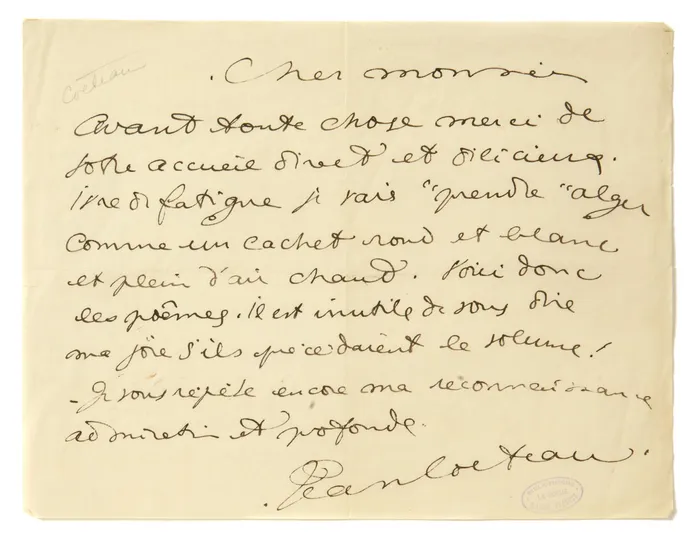 Cocteau
Cher monsieur
Avant toute chose merci de
votre accueil direct et délicieux.
ivre de fatigue je vais "prendre" alger
comme un cachet rond et blanc
et plein d'air chaud. Voici donc
les poèmes. Il est inutile de vous dire
ma joie s'ils précédaient le volume!
- Je vous répète encore ma reconnaissance
admirative et profonde.
Jean Cocteau.